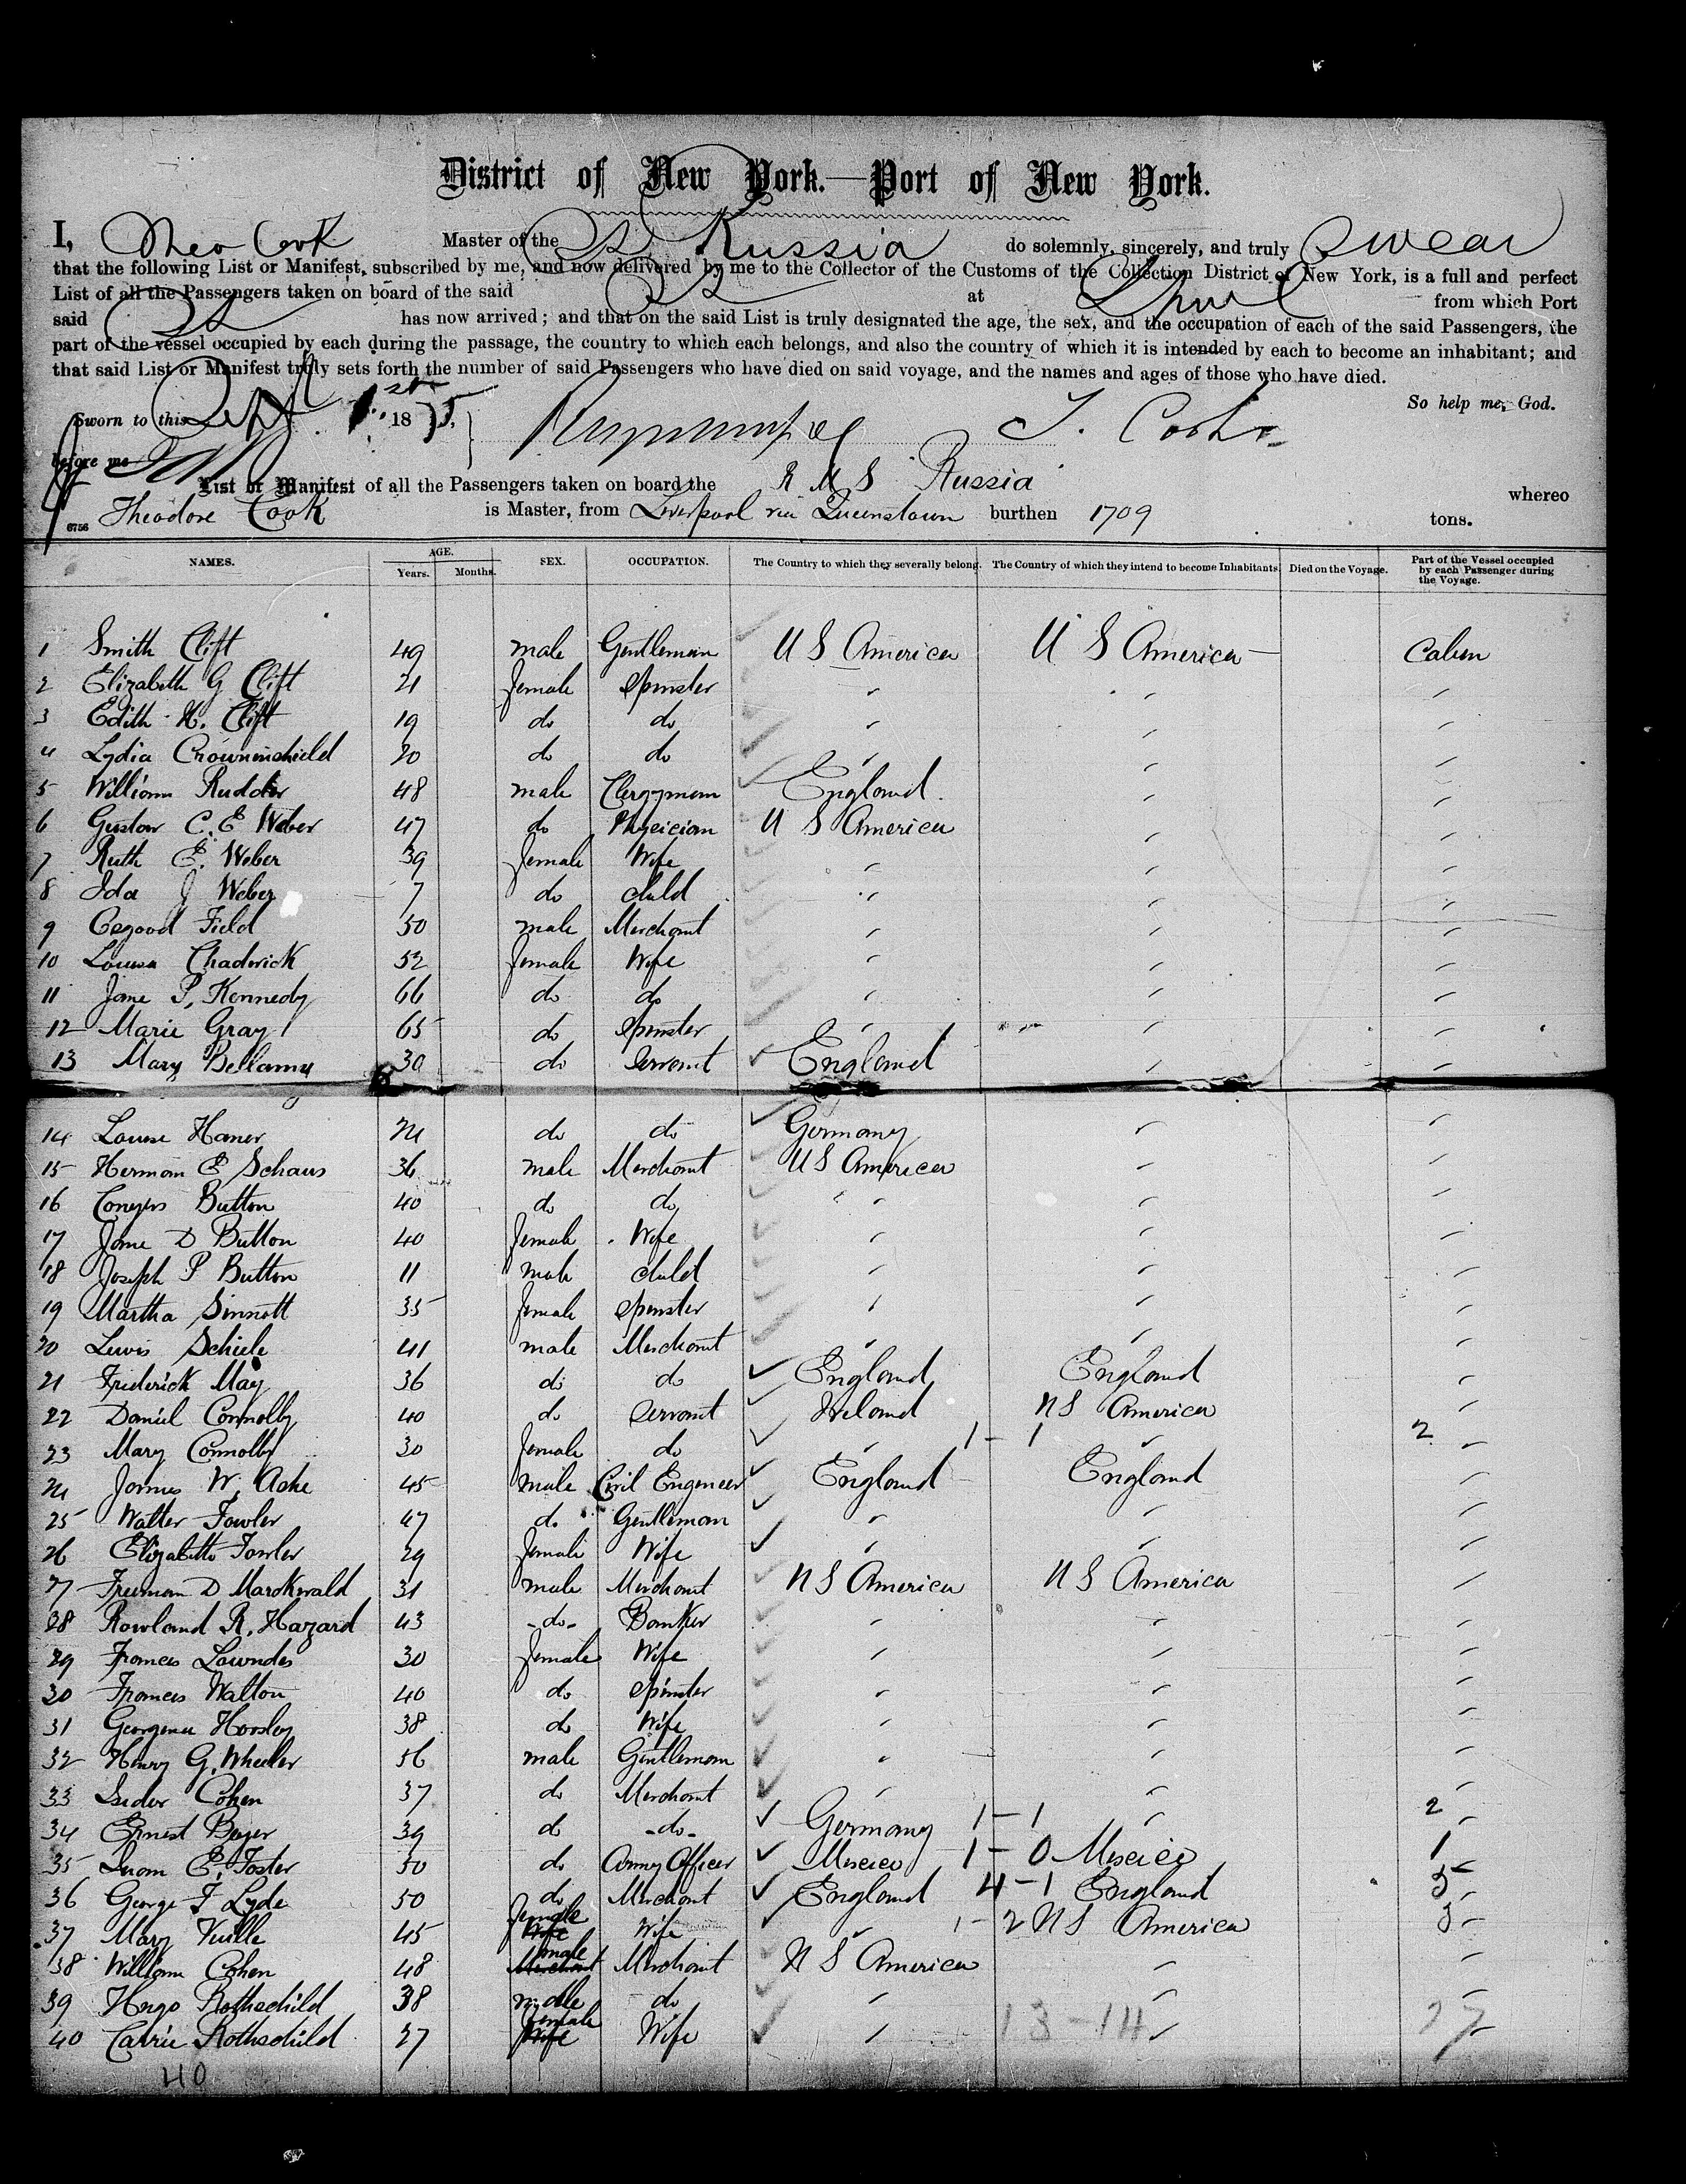 District of New York.—Port of New York.
I, Theo Cook Master of the SS Russia do solemnly, sincerely, and truly swear
that the following List or Manifest, subscribed by me, and now delivered by me to the Collector of the Customs of the Collection District of New York, is a full and perfect
List of all the Passengers taken on board of the said SS at L'pool from which Port
said SS has now arrived; and that on the said List is truly designated the age, the sex, and the occupation of each of the said Passengers, the
part of the vessel occupied by each during the passage, the country to which each belongs, and also the country of which it is intended by each to become an inhabitant; and
that said List or Manifest truly sets forth the number of said Passengers who have died on said voyage, and the names and ages of those who have died.
So help me, God.
Sworn to this Sept 1st 1875, T. Cook
before me
List or Manifest of all the Passengers taken on board the R M S Russia whereo
6756 Theodore Cook is Master, from Liverpool via Queenstown burthen 1709 tons.
NAMES. AGE. Years. Months. SEX. OCCUPATION. The Country to which they severally belong. The Country of which they intend to become Inhabitants. Died on the Voyage. Part of the Vessel occupied by each Passenger during the Voyage.
1 Smith Clift 49 male Gentleman U S America U S America Cabin
2 Elizabeth G Clift 21 female Spinster " " "
3 Edith H. Clift 19 do do " " "
4 Lydia Crowninshield 20 do do " " "
5 William Rudder 48 male Clergyman England " "
6 Gustav C. E Weber 47 do Physician U S America " "
7 Ruth E. Weber 39 female Wife " " "
8 Ida J Weber 7 do child " " "
9 Osgood Field 50 male Merchant " " "
10 Louisa Chadwick 52 female Wife " " "
11 Jane P. Kennedy 66 do do " " "
12 Marie Gray 65 do Spinster " " "
13 Mary Bellamy 30 do Servant England " "
14 Louise Haner 24 do do Germany " "
15 Herman E Schaus 36 male Merchant U S America " "
16 Conyers Button 40 do do " " "
17 Jane D Button 40 female Wife " " "
18 Joseph P Button 11 male child " " "
19 Martha Sinnott 35 female Spinster " " "
20 Lewis Schiele 41 male Merchant " " "
21 Frederick May 36 do do England England "
22 Daniel Connolly 40 do Servant Ireland U S America "
23 Mary Connolly 30 female do " 1 - 1 " 2 "
24 James W. Ashe 45 male Civil Engeneer England England "
25 Walter Fowler 47 do Gentleman " " "
26 Elizabeth Fowler 29 female Wife " " "
27 Freeman D Marckwald 31 male Merchant U S America U S America "
28 Rowland R. Hazard 43 -do- Banker " " "
29 Frances Lowndes 30 female Wife " " "
30 Frances Walton 40 do Spinster " " "
31 Georgena Horsley 38 do Wife " " "
32 Henry G. Wheeler 56 male Gentleman " " "
33 Isidor Cohen 37 do Merchant " " "
34 Ernest Beyer 39 do -do- Germany 1 - 1 " 2 "
35 E. Foster 50 do Army Officer Mexico 1 - 0 Mexico 1
36 George F Lyde 50 do Merchant England 4 - 1 England 5 "
37 Mary Vuille 45 female Wife " 1 - 2 U S America 3 "
38 William Cohen 48 male Merchant U S America " "
39 Hugo Rothschild 38 male do " " "
40 Carrie Rothschild 27 female Wife " 13 - 14 " 27 "
40